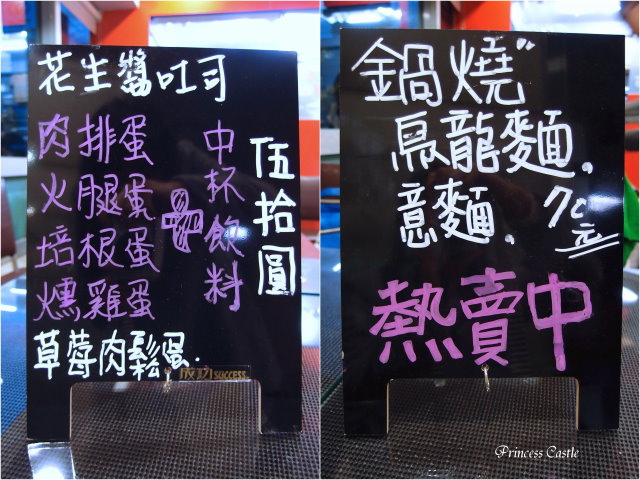 花生醬吐司
肉排蛋
火腿蛋
培根蛋
燻雞蛋
草莓肉鬆蛋.
+
中杯飲料
伍拾圓
成功 SUCCESS
鍋燒
烏龍麵.
意麵. 70元
熱賣中
Princess Castle